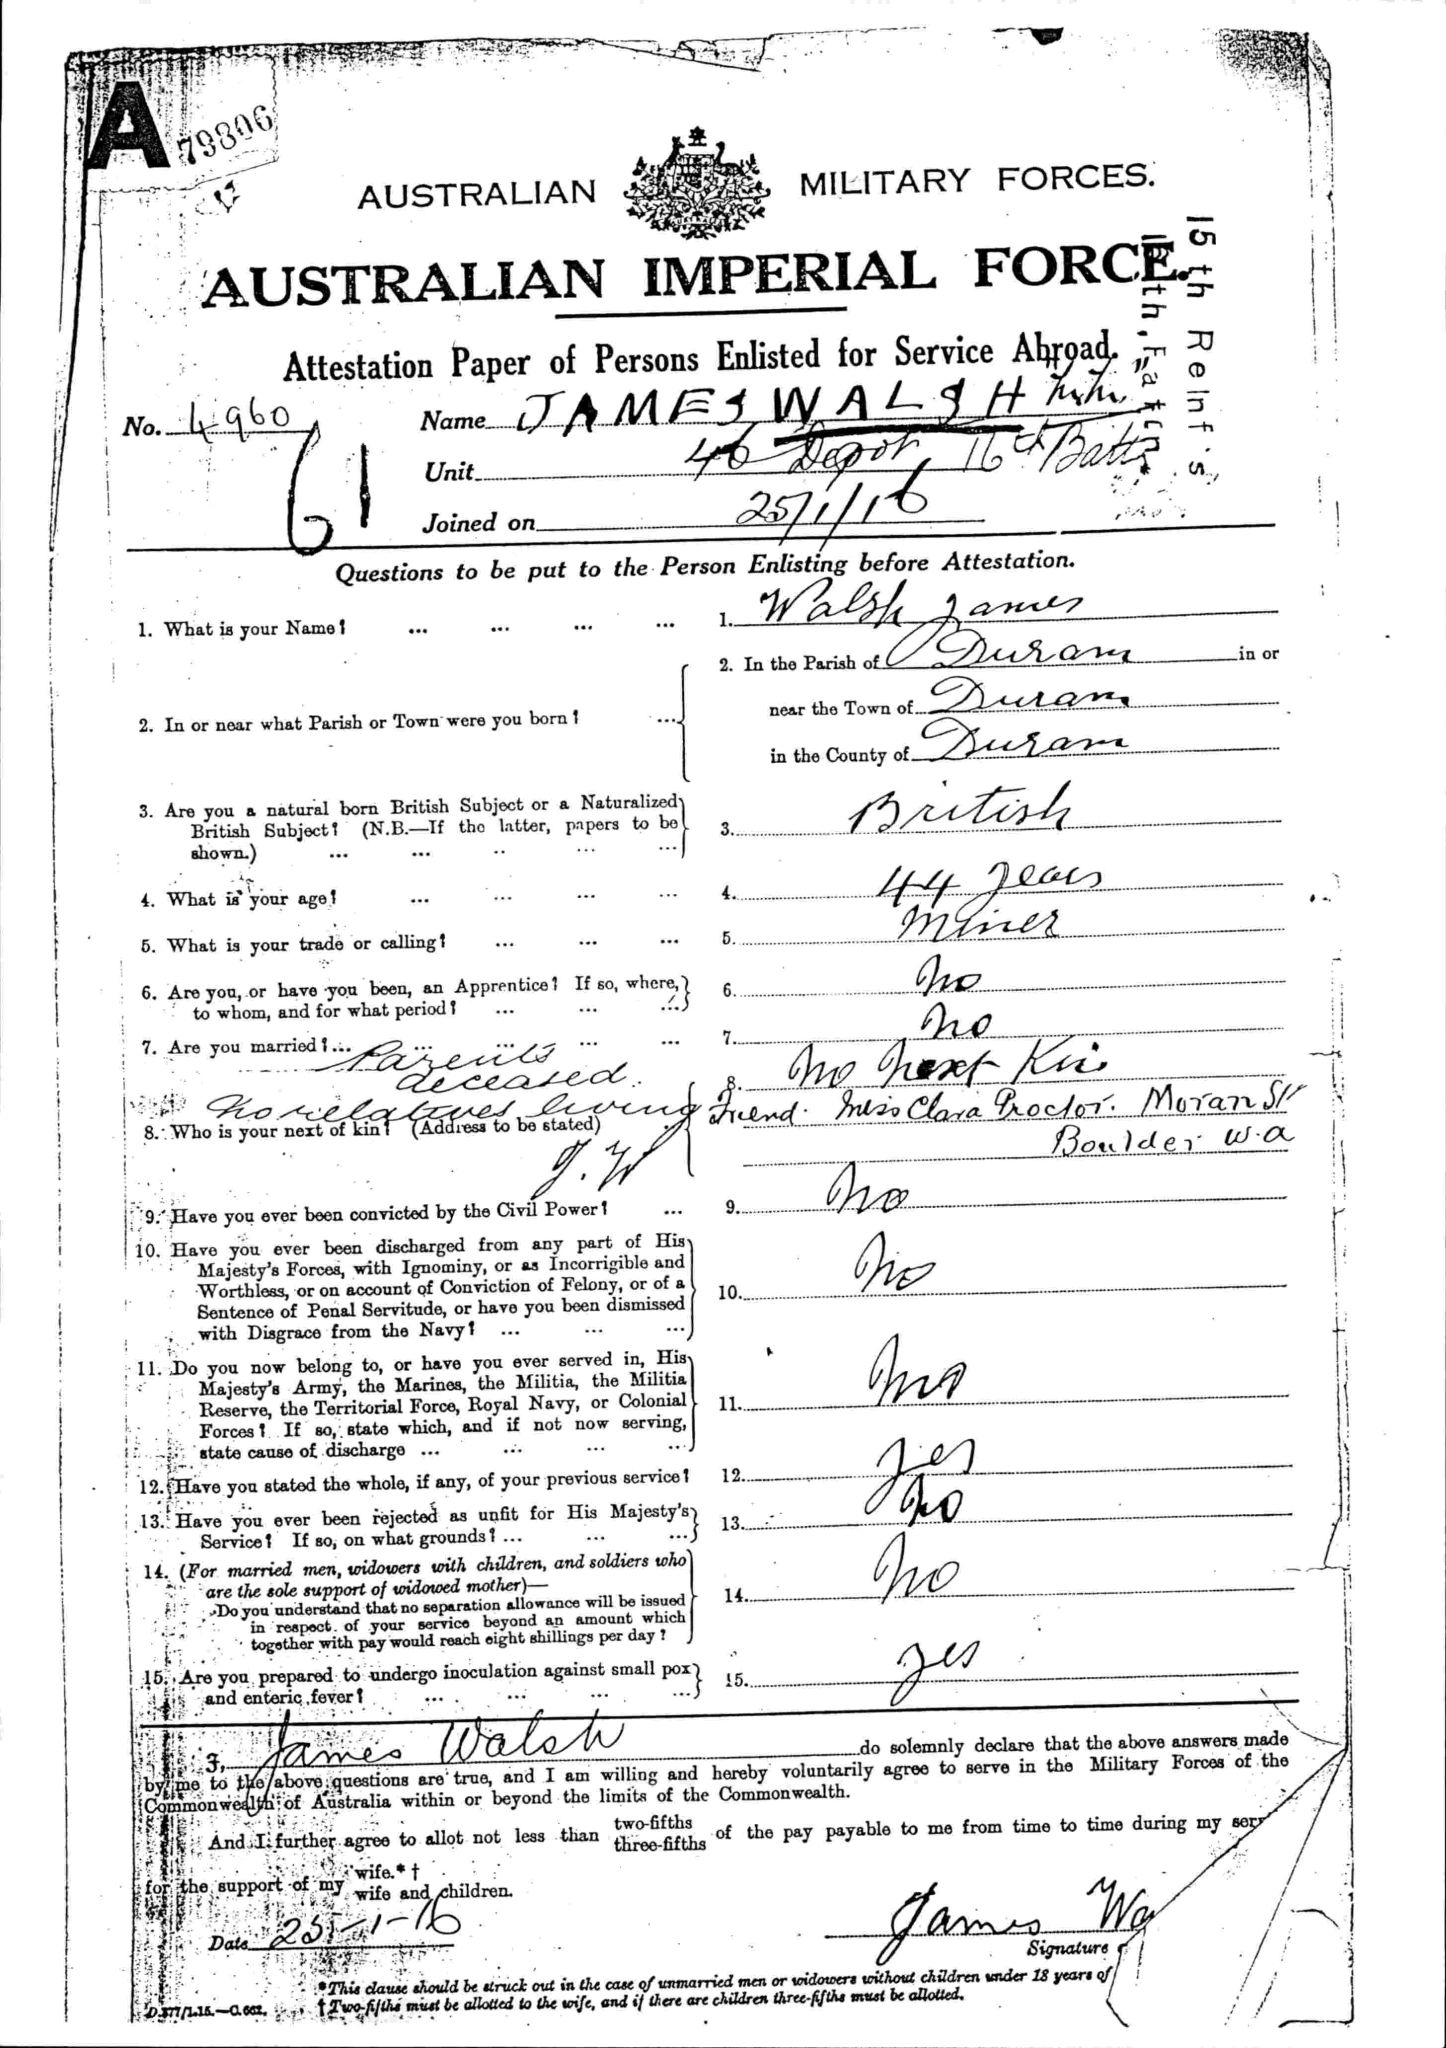 A
79806
AUSTRALIAN MILITARY FORCES.
AUSTRALIAN IMPERIAL FORCE.
15th Reinf's
Attestation Paper of Persons Enlisted for Service Abroad.
No. 4960 Name JAMES WALSH
61
Unit 46 Depot, 16th Battn
Joined on 25/1/16
Questions to be put to the Person Enlisting before Attestation.
1. What is your Name? ... ... ... ... 1. Walsh James
2. In or near what Parish or Town were you born? ... 2. In the Parish of Duram in or
near the Town of Duram
in the County of Duram
3. Are you a natural born British Subject or a Naturalized
British Subject? (N.B.—If the latter, papers to be
shown.) ... ... .. ... ... 3. British
4. What is your age? ... ... ... ... 4. 44 years
5. What is your trade or calling? ... ... ... 5. Miner
6. Are you, or have you been, an Apprentice? If so, where,
to whom, and for what period? ... ... ... 6. No
7. Are you married? ... ... ... ... ... 7. No
Parents
deceased.
no relatives living
8. Who is your next of kin? (Address to be stated) 8. No Next Kin
Friend. Miss Clara Proctor. Moran St
Boulder W.A
J.W
9. Have you ever been convicted by the Civil Power? ... 9. No
10. Have you ever been discharged from any part of His
Majesty's Forces, with Ignominy, or as Incorrigible and
Worthless, or on account of Conviction of Felony, or of a
Sentence of Penal Servitude, or have you been dismissed
with Disgrace from the Navy? ... ... ... 10. No
11. Do you now belong to, or have you ever served in, His
Majesty's Army, the Marines, the Militia, the Militia
Reserve, the Territorial Force, Royal Navy, or Colonial
Forces? If so, state which, and if not now serving,
state cause of discharge ... ... ... ... 11. No
12. Have you stated the whole, if any, of your previous service? 12. yes
13. Have you ever been rejected as unfit for His Majesty's
Service? If so, on what grounds? ... ... ... 13. No
14. (For married men, widowers with children, and soldiers who
are the sole support of widowed mother)—
Do you understand that no separation allowance will be issued
in respect of your service beyond an amount which
together with pay would reach eight shillings per day? 14. No
15. Are you prepared to undergo inoculation against small pox
and enteric fever? ... ... ... ... 15. yes
I, James Walsh do solemnly declare that the above answers made
by me to the above questions are true, and I am willing and hereby voluntarily agree to serve in the Military Forces of the
Commonwealth of Australia within or beyond the limits of the Commonwealth.
And I further agree to allot not less than two-fifths three-fifths of the pay payable to me from time to time during my ser
for the support of my wife.* † wife and children.
Date 25-1-16
James Wa
Signature
*This clause should be struck out in the case of unmarried men or widowers without children under 18 years of
†Two-fifths must be allotted to the wife, and if there are children three-fifths must be allotted.
D.377/1.15.—C.662.